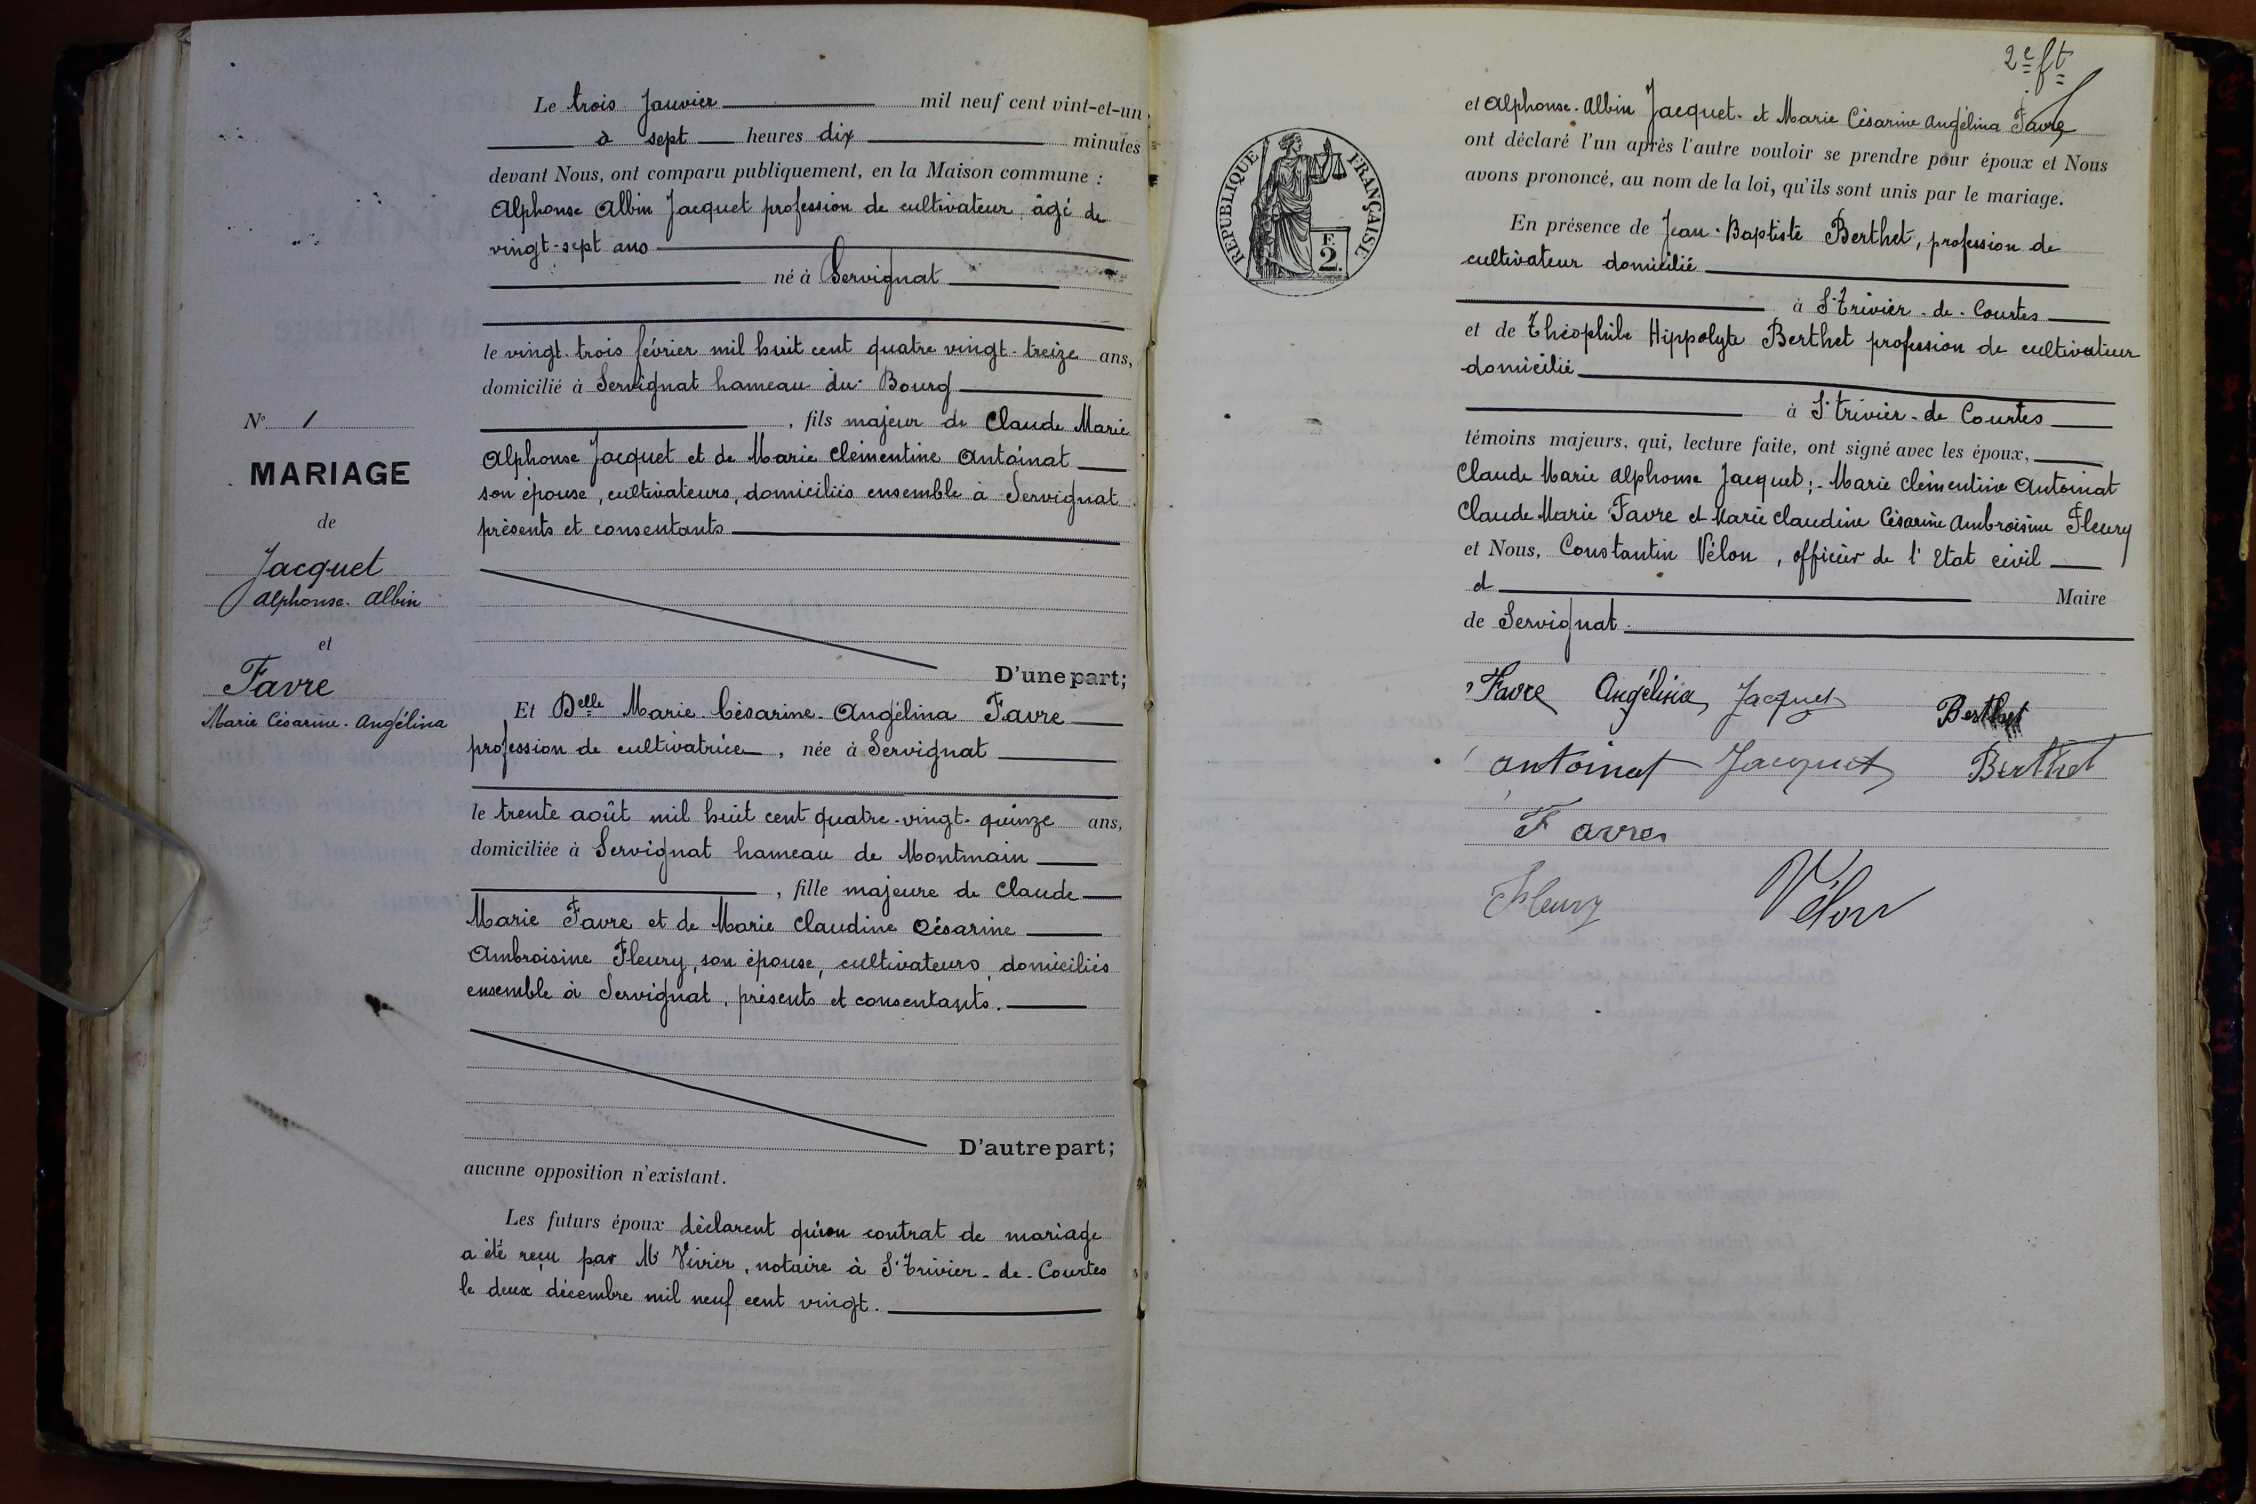 Le trois Janvier mil neuf cent vint-et-un
à sept heures dix minutes
devant Nous, ont comparu publiquement, en la Maison commune :
Alphonse Albin Jacquet profession de cultivateur, âgé de
vingt-sept ans
né à Servignat
le vingt-trois février mil huit cent quatre vingt-treize ans,
domicilié à Servignat hameau du Bourg
, fils majeur de Claude Marie
Alphonse Jacquet et de Marie Clémentine Antoinat
son épouse, cultivateurs, domiciliés ensemble à Servignat
présents et consentants
D'une part;
N° 1
MARIAGE
de
Jacquet
Alphonse-Albin
et
Favre
Marie Césarine-Angélina
Et Delle Marie-Césarine-Angélina Favre
profession de cultivatrice, née à Servignat
le trente août mil huit cent quatre-vingt-quinze ans,
domiciliée à Servignat hameau de Montmain
, fille majeure de Claude
Marie Favre et de Marie Claudine Césarine
Ambroisine Fleury, son épouse, cultivateurs, domiciliés
ensemble à Servignat, présents et consentants.
D'autre part;
aucune opposition n'existant.
Les futurs époux déclarent qu'un contrat de mariage
a été reçu par Me Vivier, notaire à St Trivier-de-Courtes
le deux décembre mil neuf cent vingt.
2e ft
RÉPUBLIQUE FRANÇAISE
F.
2.
et Alphonse-Albin Jacquet et Marie Césarine Angélina Favre
ont déclaré l'un après l'autre vouloir se prendre pour époux et Nous
avons prononcé, au nom de la loi, qu'ils sont unis par le mariage.
En présence de Jean-Baptiste Berthet, profession de
cultivateur domicilié
à St-Trivier-de-Courtes
et de Théophile Hippolyte Berthet profession de cultivateur
domicilié
à St Trivier-de Courtes
témoins majeurs, qui, lecture faite, ont signé avec les époux,
Claude Marie Alphonse Jacquet ;- Marie Clémentine Antoinat
Claude Marie Favre et Marie Claudine Césarine Ambroisine Fleury
et Nous, Constantin Vélon, officier de l'Etat civil
et Maire
de Servignat.
Favre Angélina Jacquet Berthet
Antoinat Jacquet Berthet
Favre
Fleury Vélon